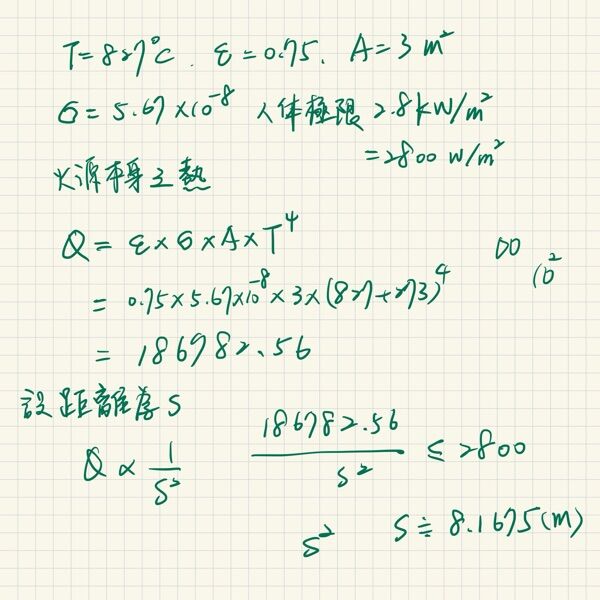 T=827°C. ε=0.75. A=3 m²
σ=5.67×10⁻⁸ 人体極限 2.8kW/m²
=2800 W/m²
火源本身之熱
Q = ε×σ×A×T⁴
= 0.75×5.67×10⁻⁸×3×(827+273)⁴
= 186782.56
00
10²
設距離為 S
Q ∝ 1/S²
186782.56/S² ≤ 2800
S²
S ≒ 8.1675(m)